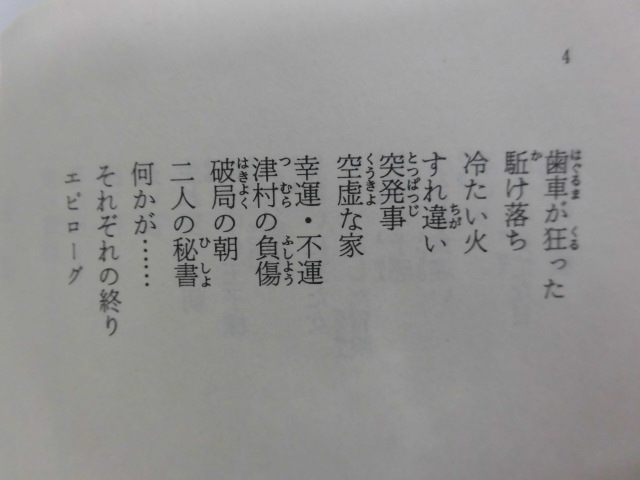 4
歯車が狂った
駈け落ち
冷たい火
すれ違い
突発事
空虚な家
幸運・不運
津村の負傷
破局の朝
二人の秘書
何かが……
それぞれの終り
エピローグ